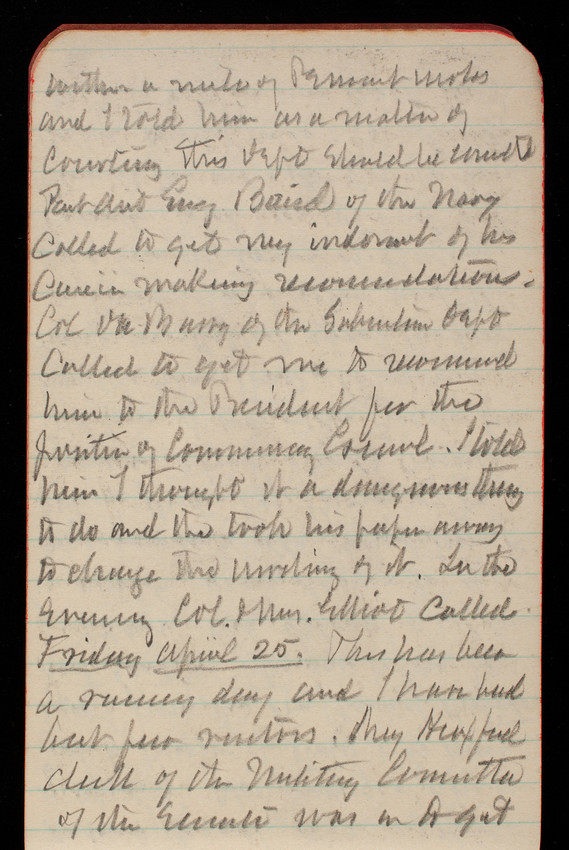 within a mile of
and I told him as a matter of
Courtesy this Dept should be
Baird of the Navy
Called to get my indorsmt of his
making recommendations.
Col of the Subsistence Dept
Called to get me to recommend
him to the President for the
position of Commissary General. I told
him I thought it a dangerous thing
to do and the took his paper away
to change the wording of it. In the
Evening Col. & Mrs. Elliot called.
Friday April 25. This has been
a rainey day and I have had
but few visitors.
clerk of the Military Committee
of the Senate was in to get